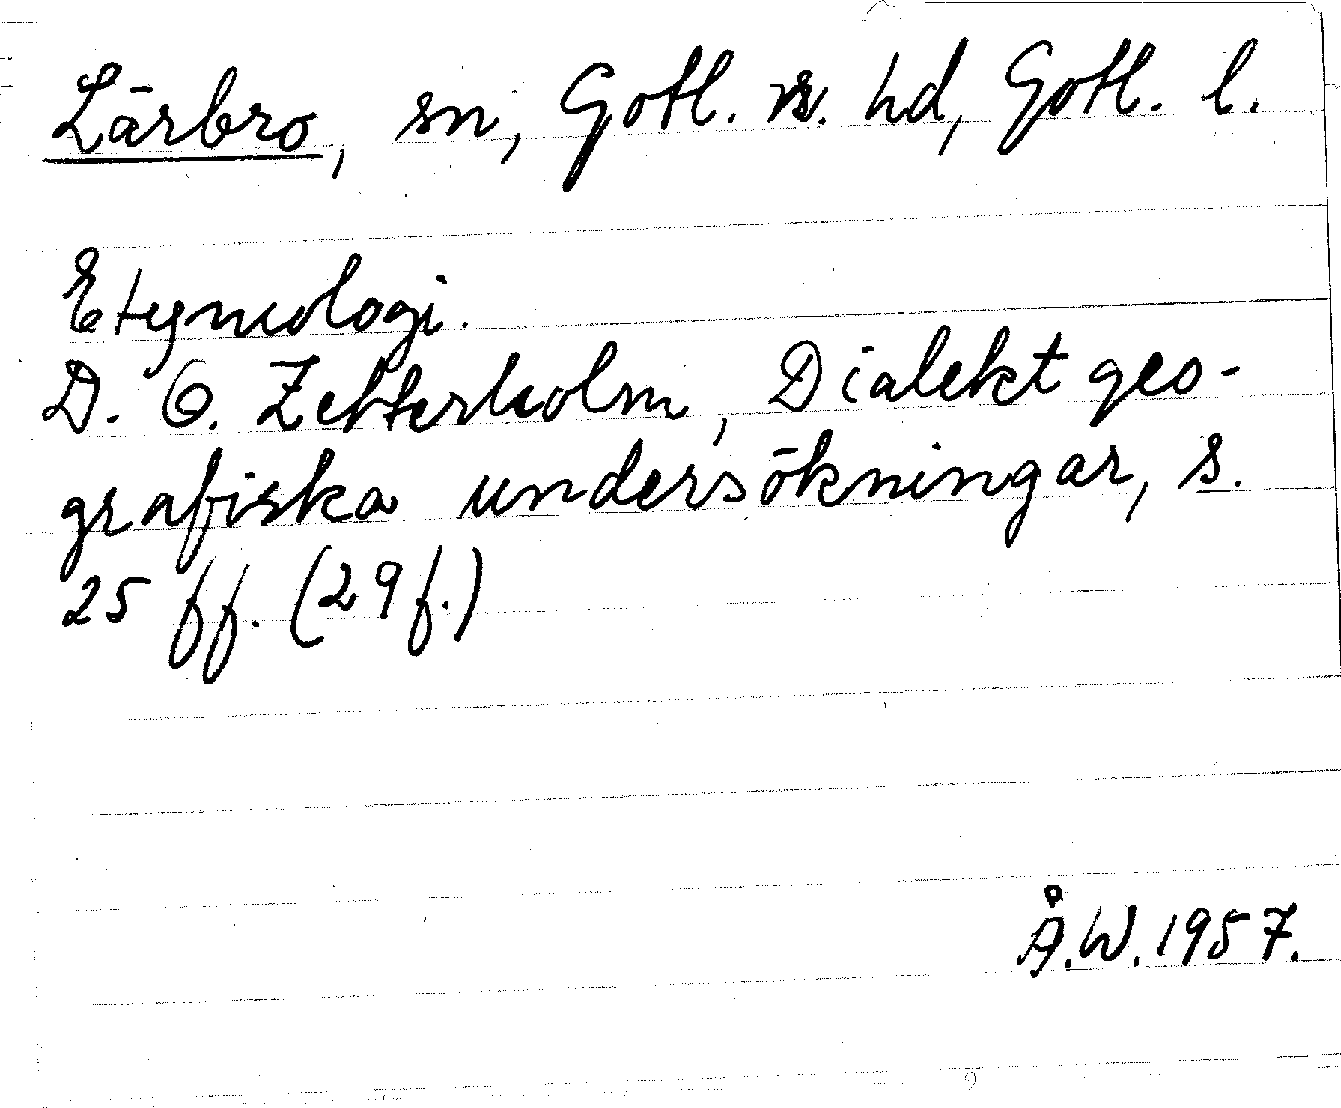 Lärbro, sn, Gotl. n. hd, Gotl. l.
Etymologi.
D. O. Zetterholm, Dialektgeo-
grafiska undersökningar, s.
25 ff. (29 f.)
Å.W. 1957.